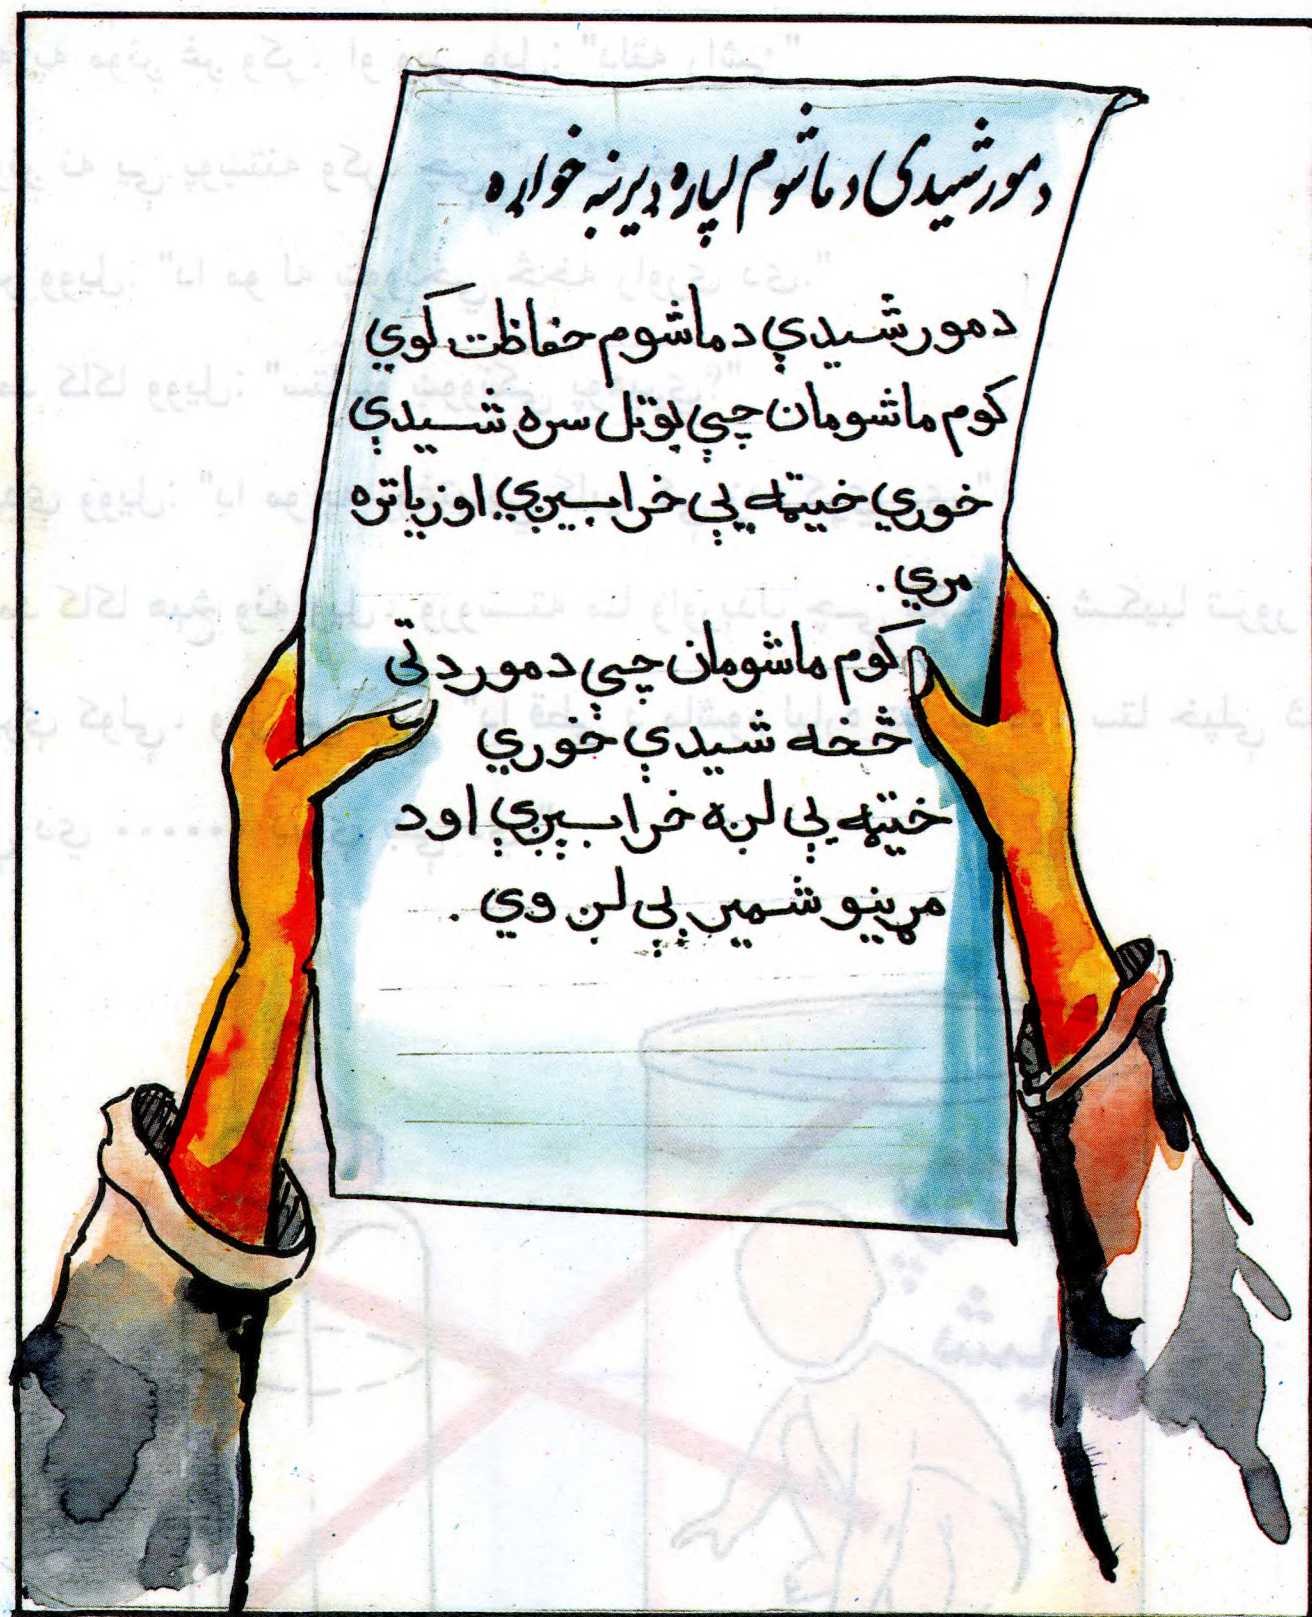 دمور شیدی د ماشوم لپاره ډیر ښه خواړه
دمور شیدې د ماشوم حفاظت کوي
کوم ماشومان چې بوتل سره شیدې
خوري خیټه یې خرابیږي او زیاتره
مري .
کوم ماشومان چې د مور د تی
څخه شیدې خوري
خیټه یې لږه خرابیږي او د
مړینو شمیر یې لږ وي .